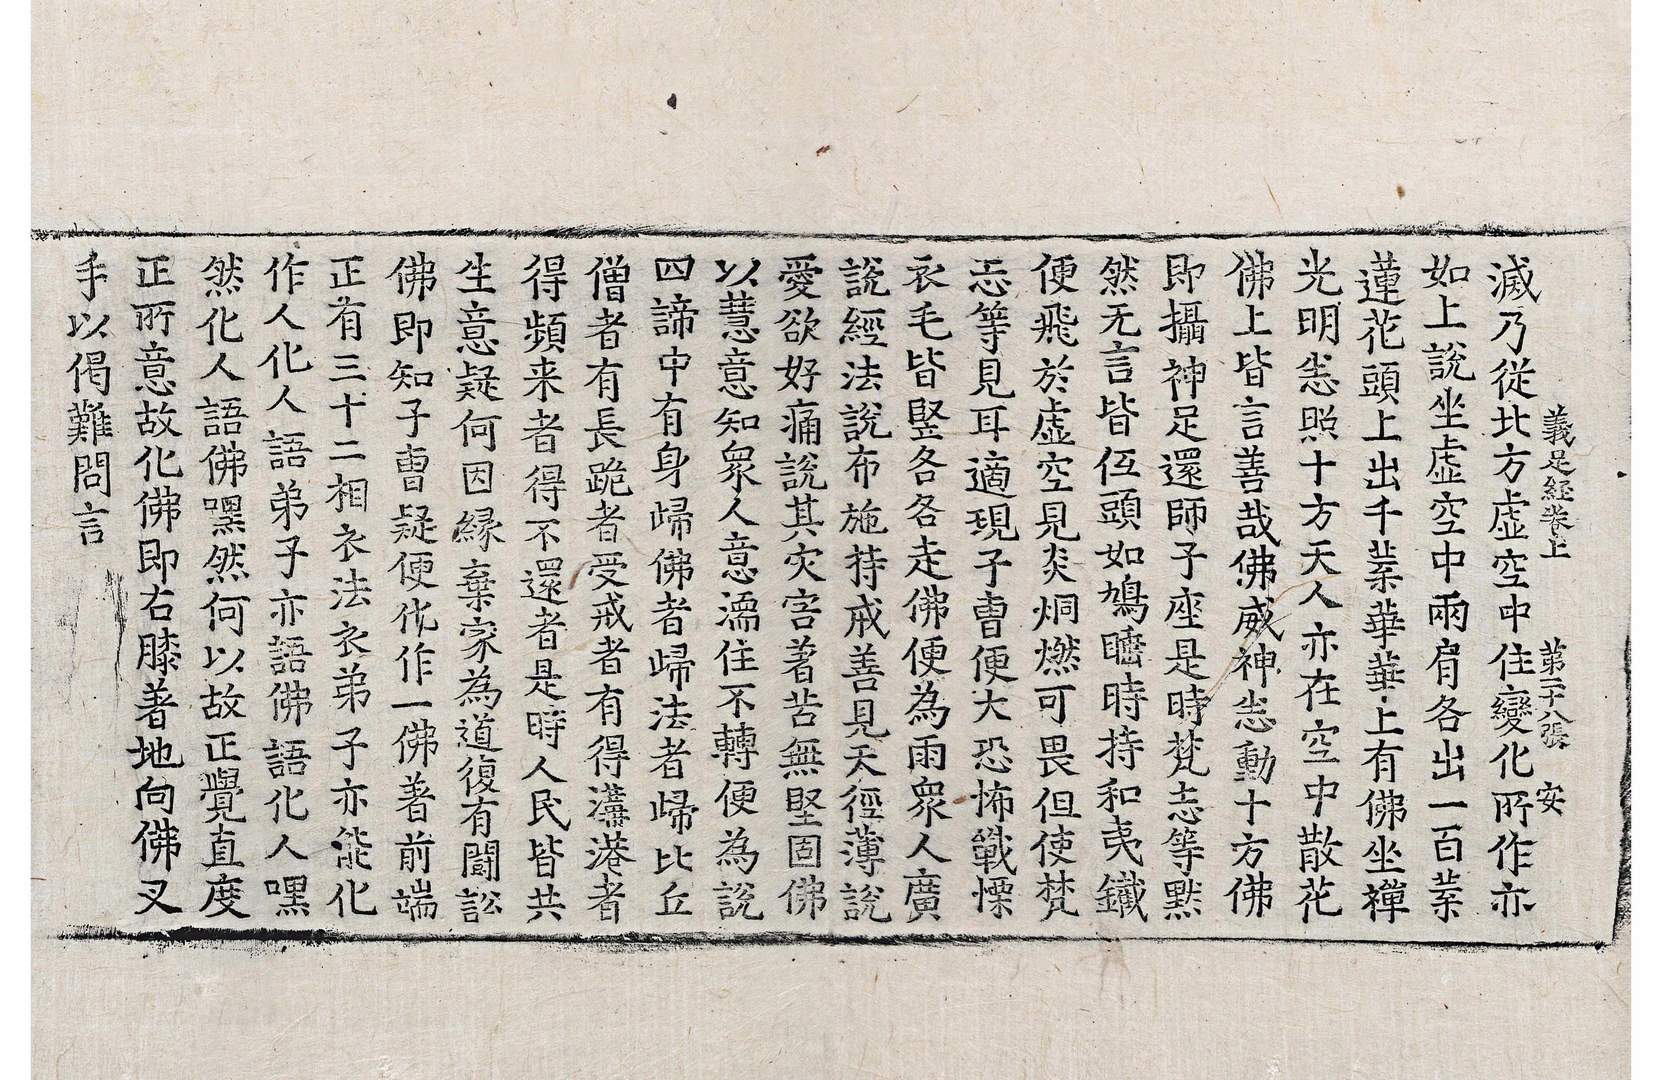 義足経卷上　第二十八張　安
滅乃從北方虛空中住變化所作亦
如上說坐虛空中兩肩各出一百葉
蓮花頭上出千葉華華上有佛坐禪
光明悉照十方天人亦在空中散花
佛上皆言善哉佛威神悉動十方佛
即攝神足還師子座是時梵志等默
然无言皆伍頭如鳩睡時持和夷鐵
便飛於虛空見炎烔燃可畏但使梵
志等見耳適現子曺便大恐怖戰慄
衣毛皆竪各各走佛便為雨衆人廣
說經法說布施持戒善見天徑薄說
愛欲好痛說其灾害著苦無堅固佛
以慧意知衆人意濡住不轉便為說
四諦中有身歸佛者歸法者歸比丘
僧者有長跪者受戒者有得溝港者
得頻来者得不還者是時人民皆共
生意疑何因緣棄家為道復有鬪訟
佛即知子曺疑便化作一佛著前端
正有三十二相衣法衣弟子亦能化
作人化人語弟子亦語佛語化人嘿
然化人語佛嘿然何以故正覺直度
正所意故化佛即右膝著地向佛叉
手以偈難問言